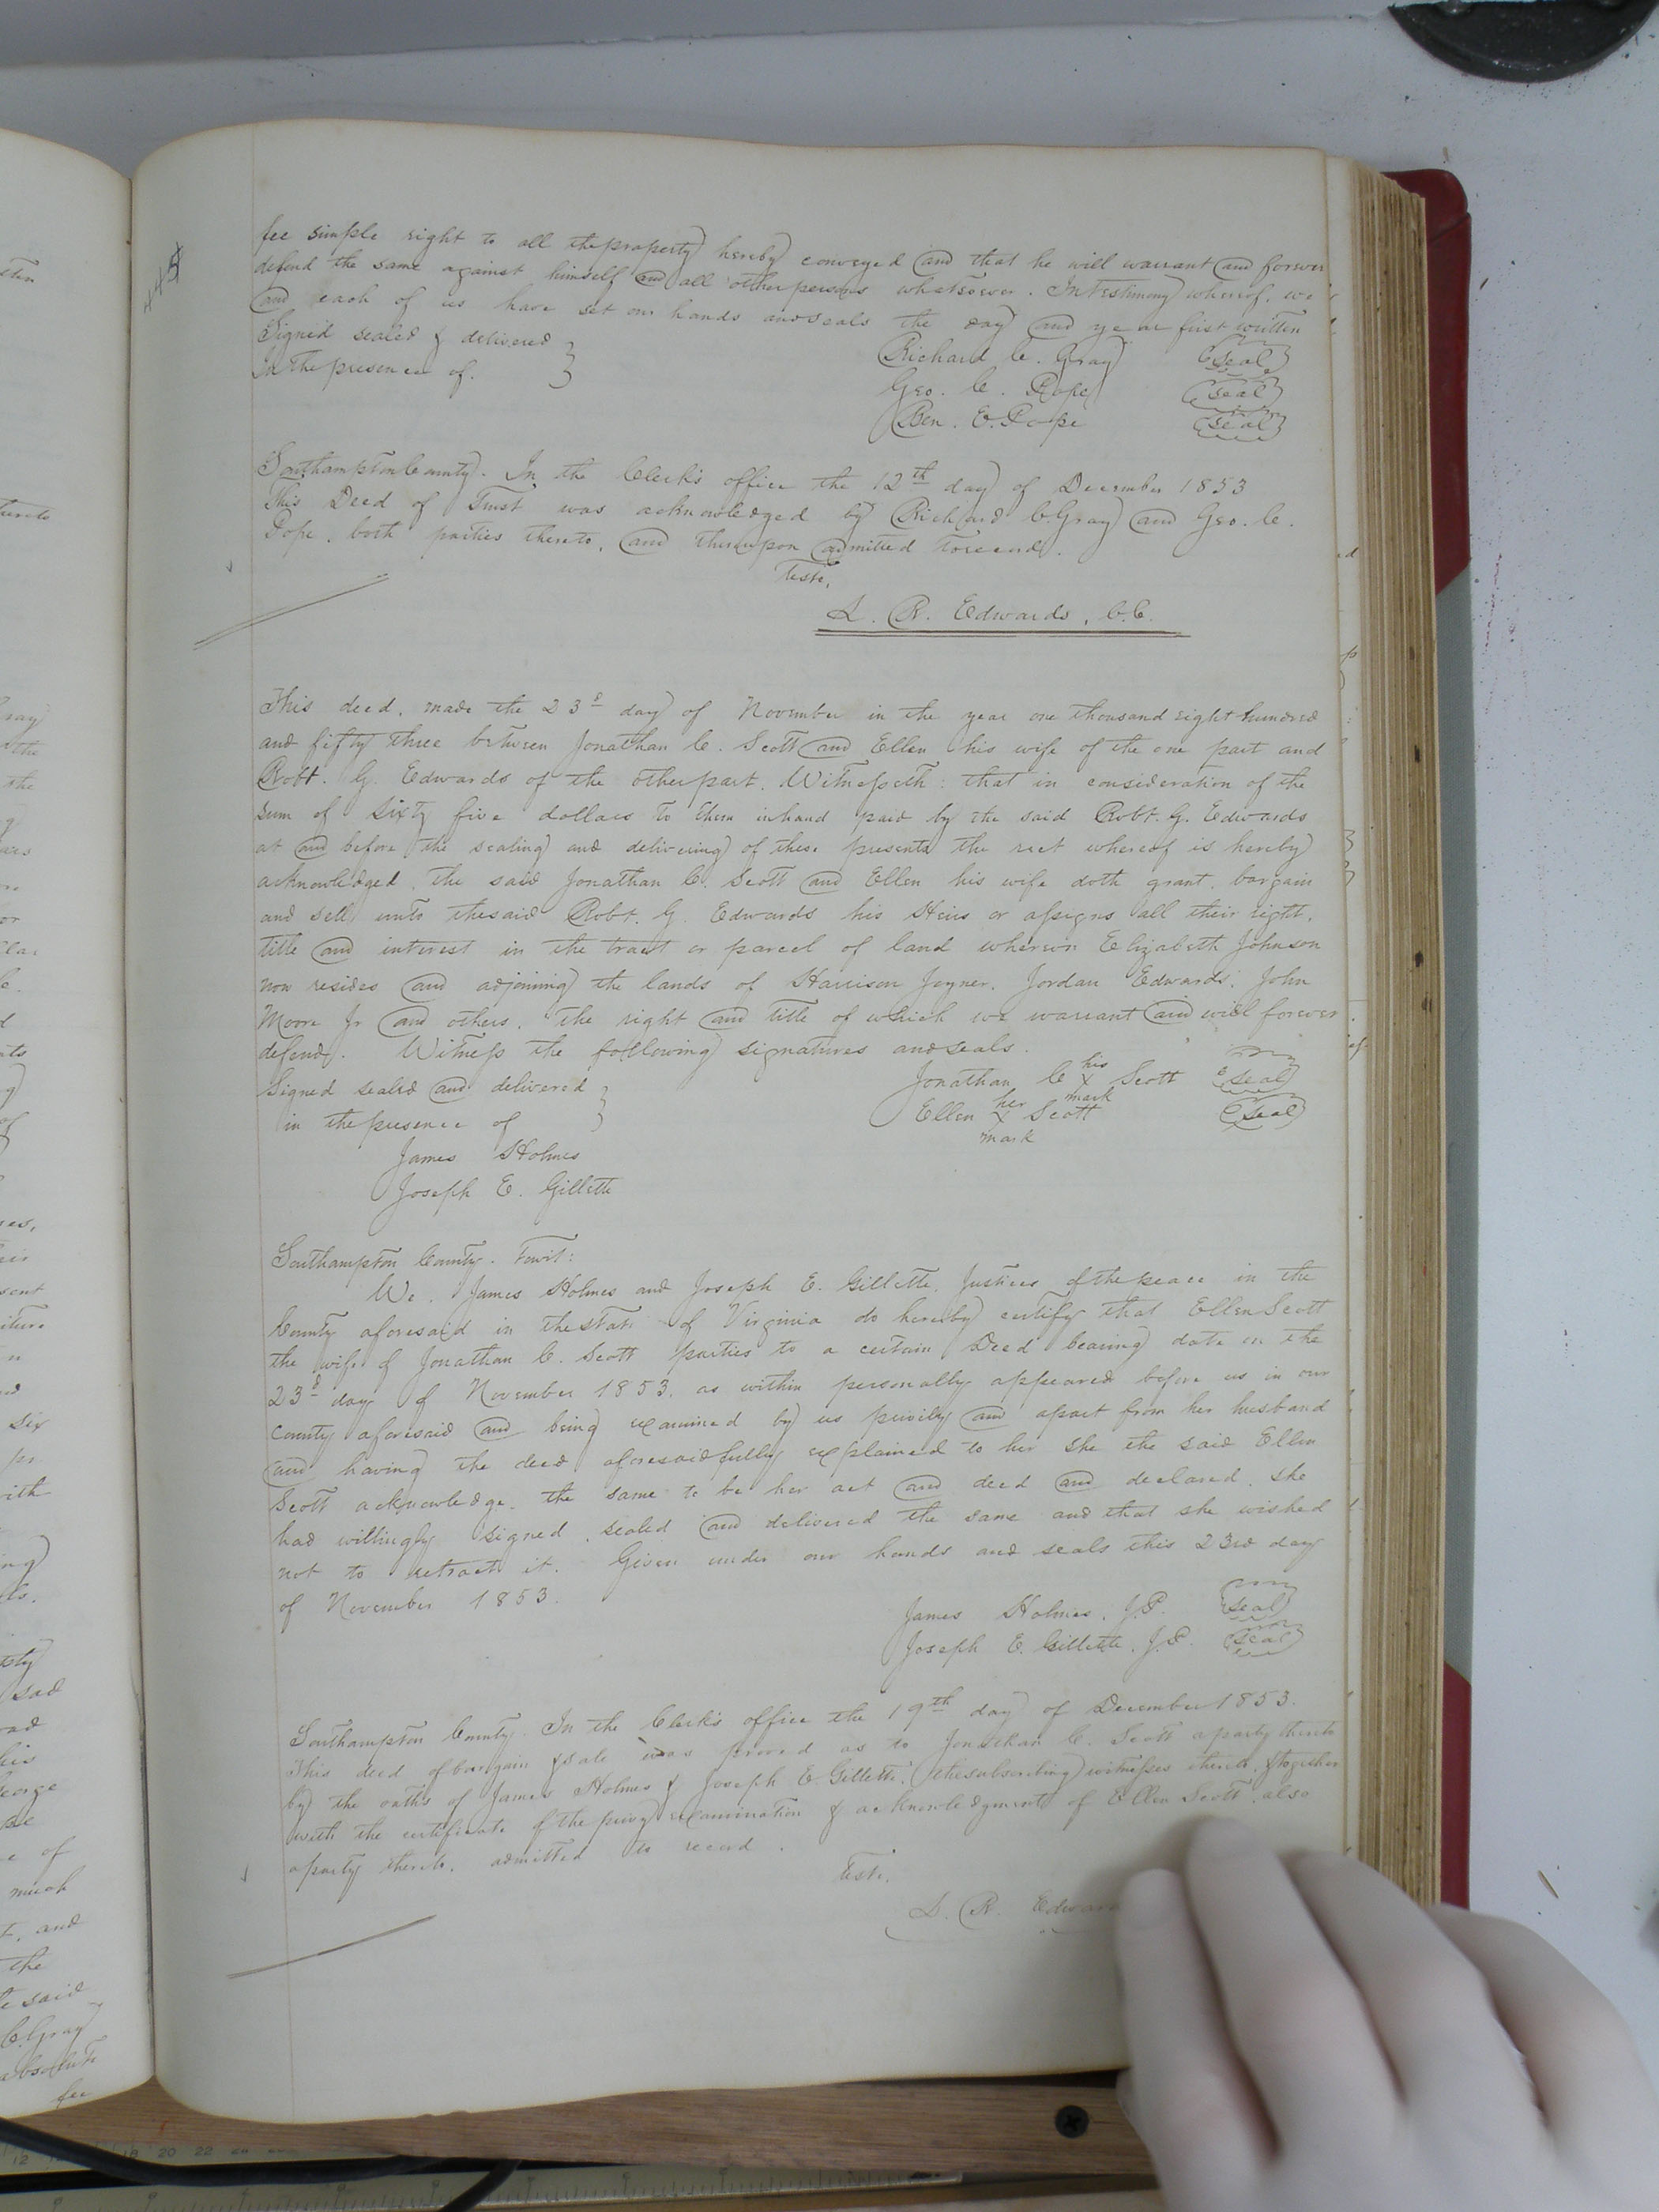 445
fee simple right to all the property hereby conveyed and that he will warrant and forever
defend the same against himself and all other persons whatsoever. In testimony whereof, we
and each of us have set our hands and seals the day and year first written
Signed sealed & delivered
In the presence of.
Richard C. Gray seal
Geo. C. Pope seal
Ben. E. Pope seal
Southampton County. In the Clerk's office the 12th day of December 1853
This Deed of Trust was acknowledged by Richard C. Gray and Geo. C.
Pope, both parties thereto, and thereupon admitted to record.
Teste,
L. R. Edwards, C.C.
This deed, made the 23d day of November in the year one thousand eight hundred
and fifty three between Jonathan C. Scott and Ellen his wife of the one part and
Robt. G. Edwards of the other part. Witnesseth: that in consideration of the
sum of sixty five dollars to them in hand paid by the said Robt. G. Edwards
at and before the sealing and delivering of these presents the rect whereof is hereby
acknowledged, the said Jonathan C. Scott and Ellen his wife doth grant, bargain
and sell unto the said Robt. G. Edwards his Heirs or assigns all their right,
title and interest in the tract or parcel of land whereon Elizabeth Johnson
now resides and adjoining the lands of Harrison Joyner, Jordan Edwards, John
Moore Jr and others, the right and title of which we warrant and will forever
defend. Witness the following signatures and seals.
Signed sealed and delivered
in the presence of
James Holmes
Joseph E. Gillette
Jonathan C his X mark Scott seal
Ellen her X mark Scott seal
Southampton County. Towit:
We, James Holmes and Joseph E. Gillette, Justices of the peace in the
County aforesaid in the State of Virginia do hereby certify that Ellen Scott
the wife of Jonathan C. Scott parties to a certain Deed bearing date on the
23d day of November 1853, as within personally appeared before us in our
County aforesaid and being examined by us privily and apart from her husband
and having the deed aforesaid fully explained to her she the said Ellen
Scott acknowledge, the same to be her act and deed and declared, she
had willingly signed, sealed and delivered the same and that she wished
not to retract it. Given under our hands and seals this 23rd day
of November 1853.
James Holmes, J.P. seal
Joseph E. Gillette, J.P. seal
Southampton County. In the Clerk's office the 19th day of December 1853.
This deed of bargain & sale was proved as to Jonathan C. Scott a party thereto
by the oaths of James Holmes & Joseph E. Gillette, the subscribing witnesses thereto, & together
with the certificate of the privy examination & acknowledgment of Ellen Scott, also
a party thereto, admitted to record.
Teste,
L. R. Edward